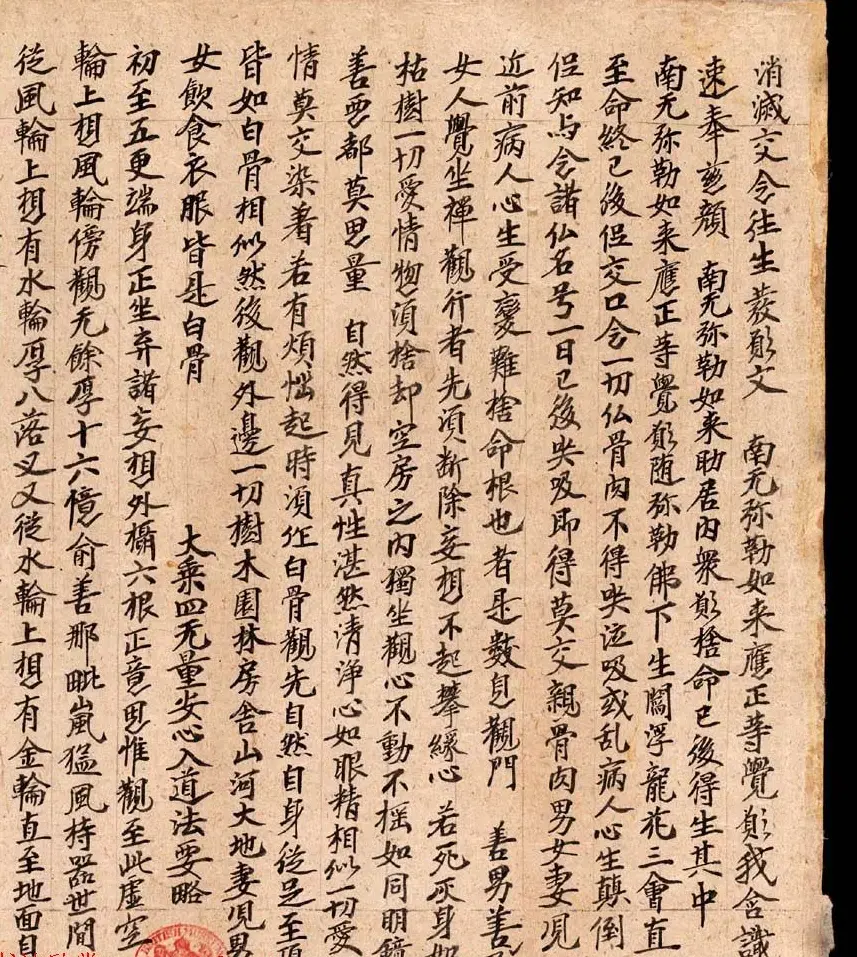 消滅交令往生發願文　南无弥勒如来應正等覺願我含識
速奉慈顔　南无弥勒如来所居内衆願捨命已後得生其中
南无弥勒如来應正等覺願随弥勒佛下生閻浮龍花三會直
至命終已後但交口念一切仏骨肉不得哭泣吸或乱病人心生顛倒
但知与念諸仏名号一日已後哭吸即得莫交親骨肉男女妻児
近前病人心生受憂難捨命根也者是數息觀門　善男善
女人覺坐禪觀行者先須断除妄想不起攀緣心　若死灰身如
枯樹一切愛情物須捨却空房之内獨坐觀心不動不揺如同明鏡
善惡都莫思量　自然得見真性湛然清浄心如眼精相似一切愛
情莫交染著若有煩惱起時須作白骨觀先自然自身從足至頂
皆如白骨相似然後觀外邊一切樹木園林房舎山河大地妻児男
女飲食衣服皆是白骨　大乘四无量安心入道法要略
初至五更端身正坐弃諸妄想外攝六根正意思惟觀至此虚空
輪上想風輪傍觀无餘厚十六億俞善那毗嵐猛風持器世間
從風輪上想有水輪厚八落叉又從水輪上想有金輪直至地面自